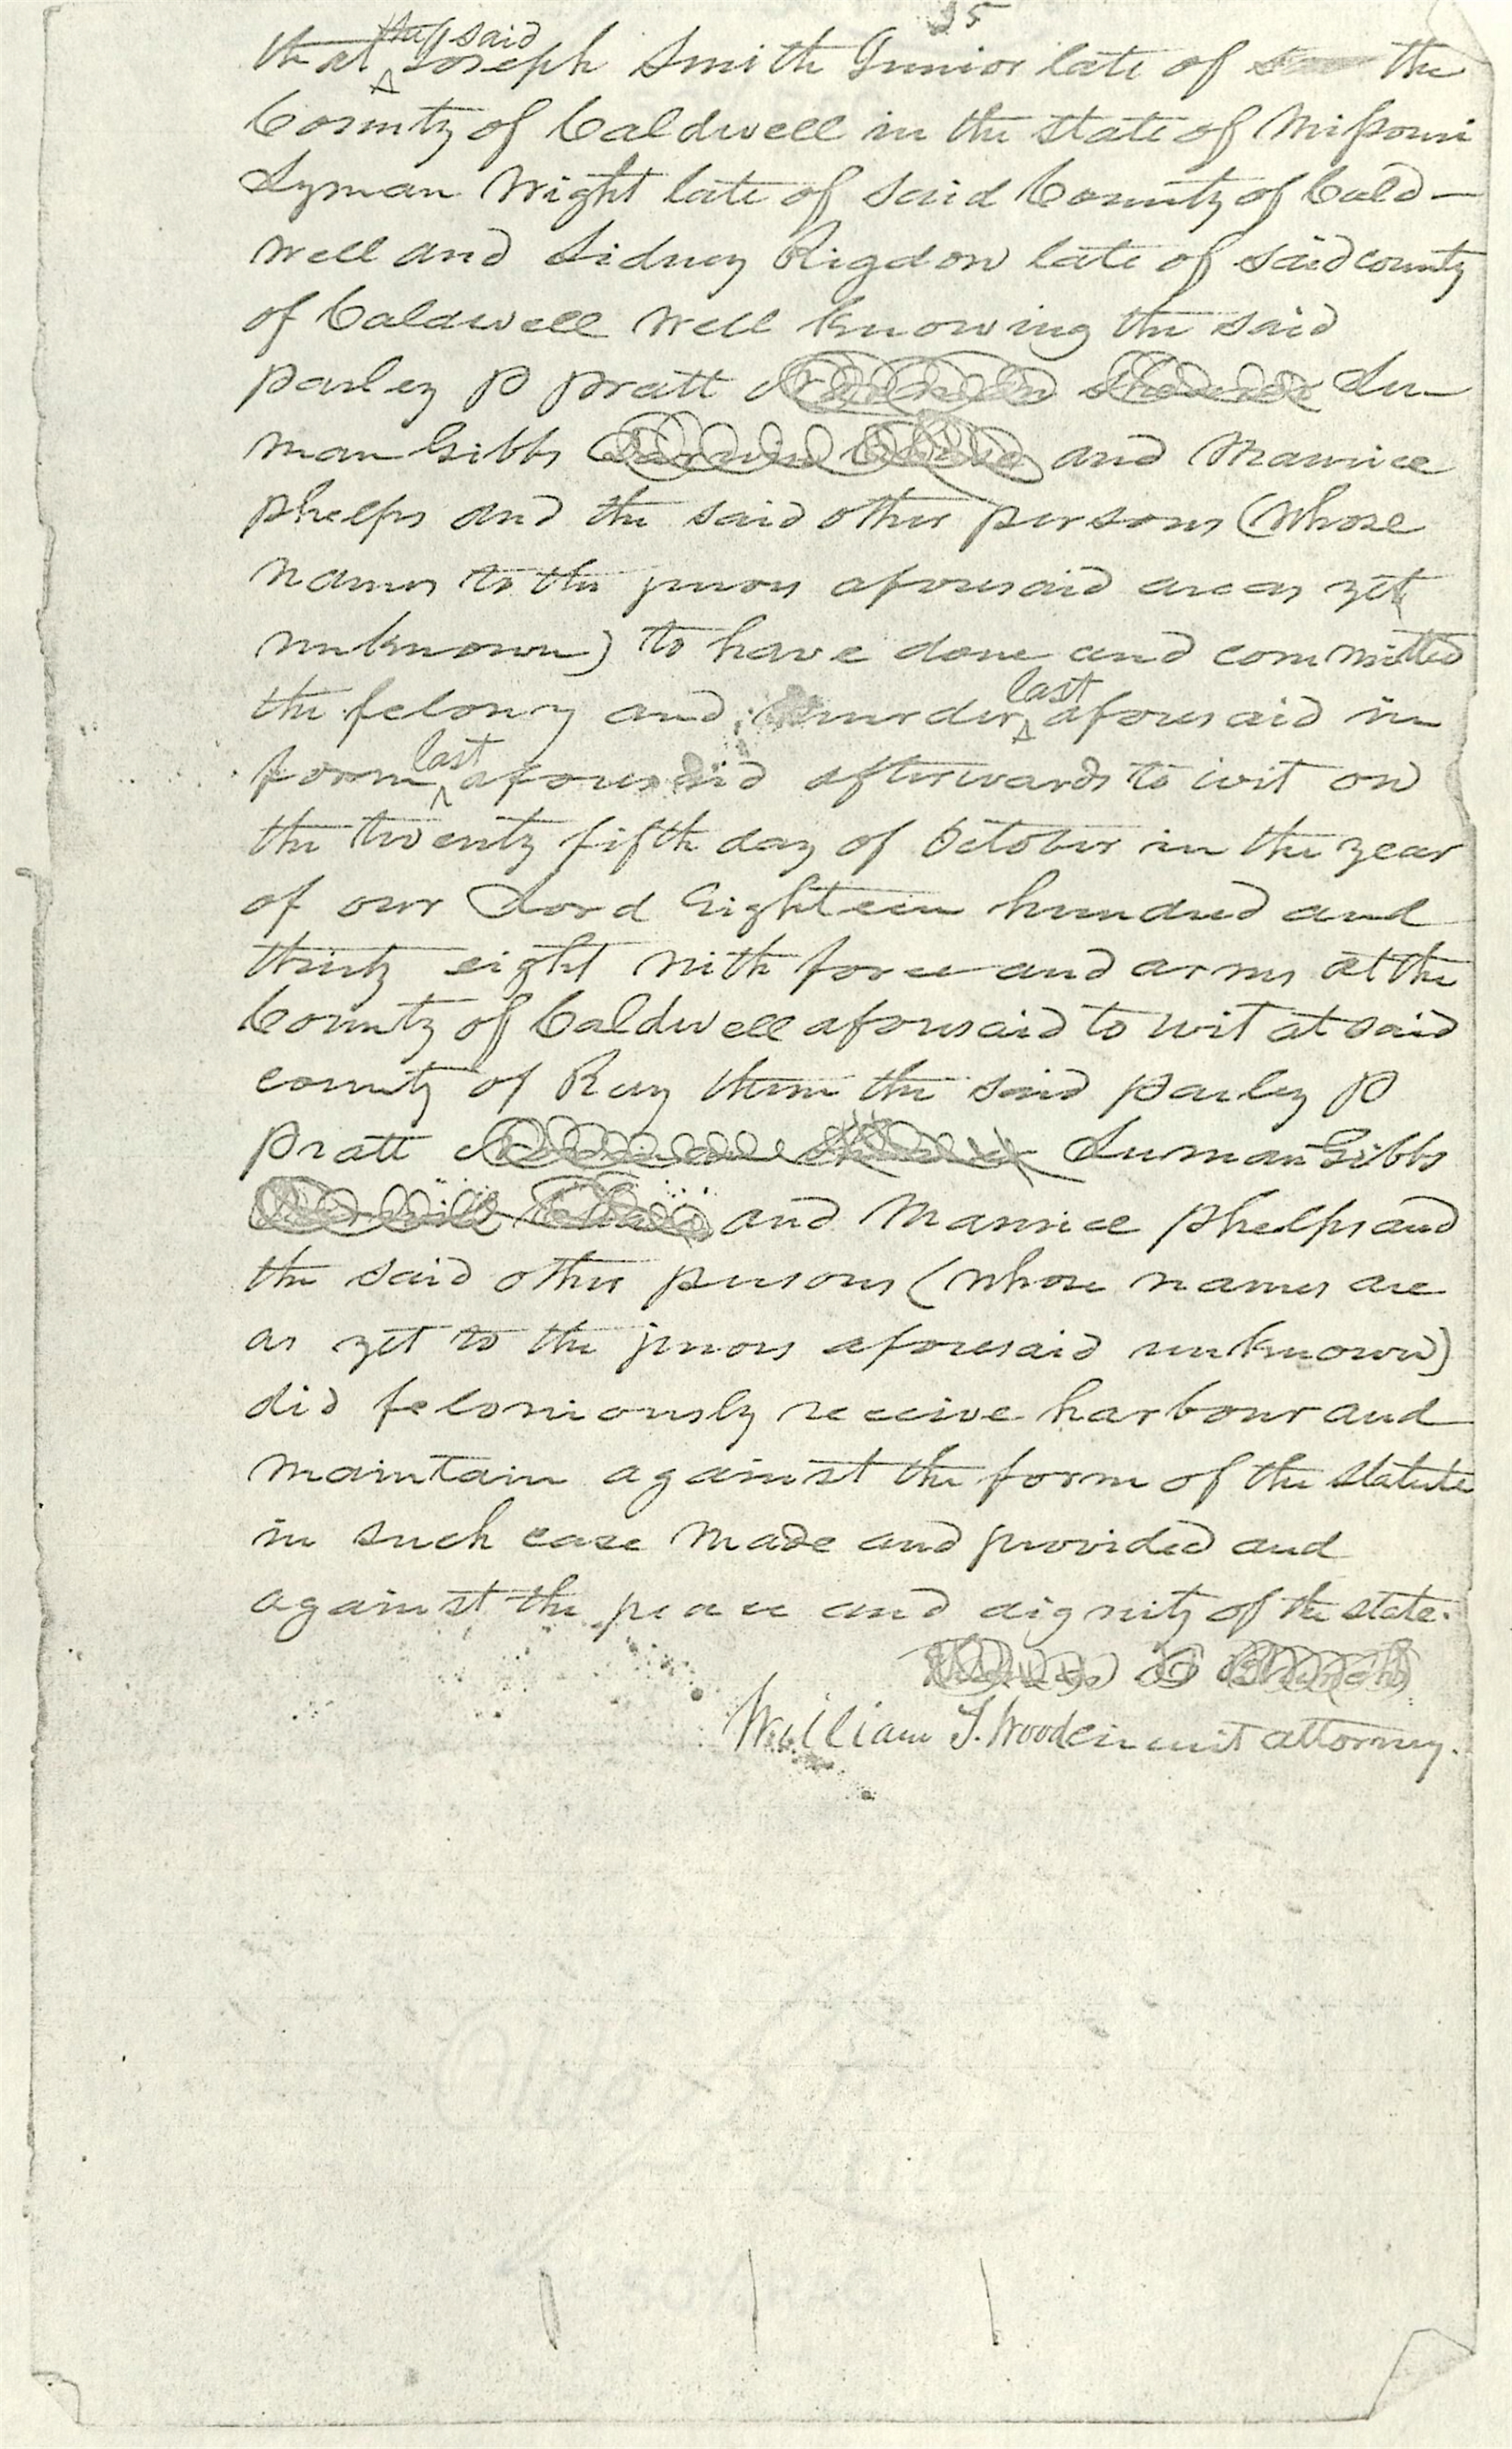 35
that the said Joseph Smith Junior late of the
County of Caldwell in the state of Missouri
Lyman Wight late of said County of Cald-
well and Sidney Rigdon late of said county
of Caldwell well knowing the said
parley P pratt Lu-
man Gibbs and Maurice
phelps and the said other persons (whose
names to the jurors aforesaid are as yet
unknown) to have done and committed
the felony and murder last aforesaid in
form last aforesaid afterwards to wit on
the twenty fifth day of October in the year
of our Lord Eighteen hundred and
thirty eight with force and arms at the
County of Caldwell aforesaid to wit at said
county of Ray them the said parley P
pratt Luman Gibbs
and Maurice phelps and
the said other persons (whose names are
as yet to the jurors aforesaid unknown)
did feloniously receive harbour and
maintain against the form of the statute
in such case made and provided and
against the peace and dignity of the state.
William T. Wood circuit attorney.